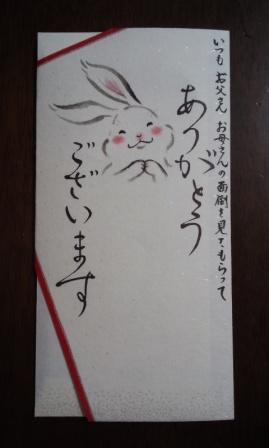 いつも お父さん お母さんの面倒を見てもらって
ありがとう
ございます